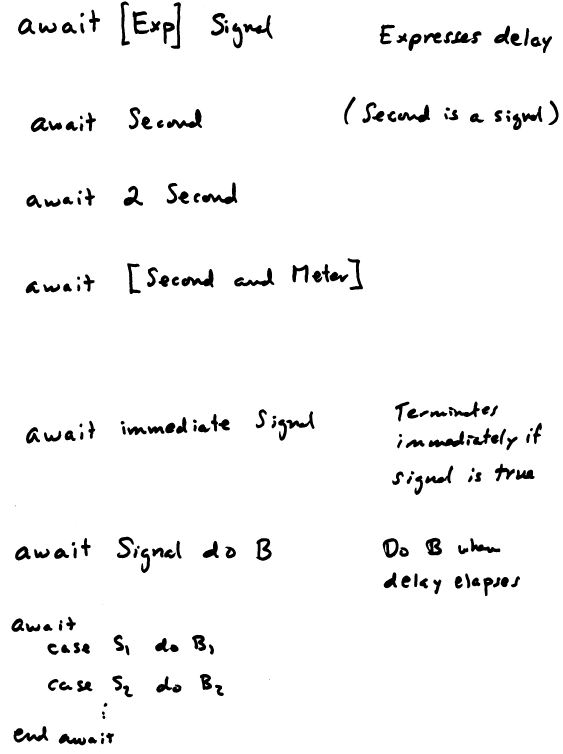 await [Exp] Signal Expresses delay
await Second (Second is a signal)
await 2 Second
await [Second and Meter]
await immediate Signal Terminates
immediately if
signal is true
await Signal do B Do B when
delay elapses
await
case S₁ do B₁
case S₂ do B₂
⋮
end await